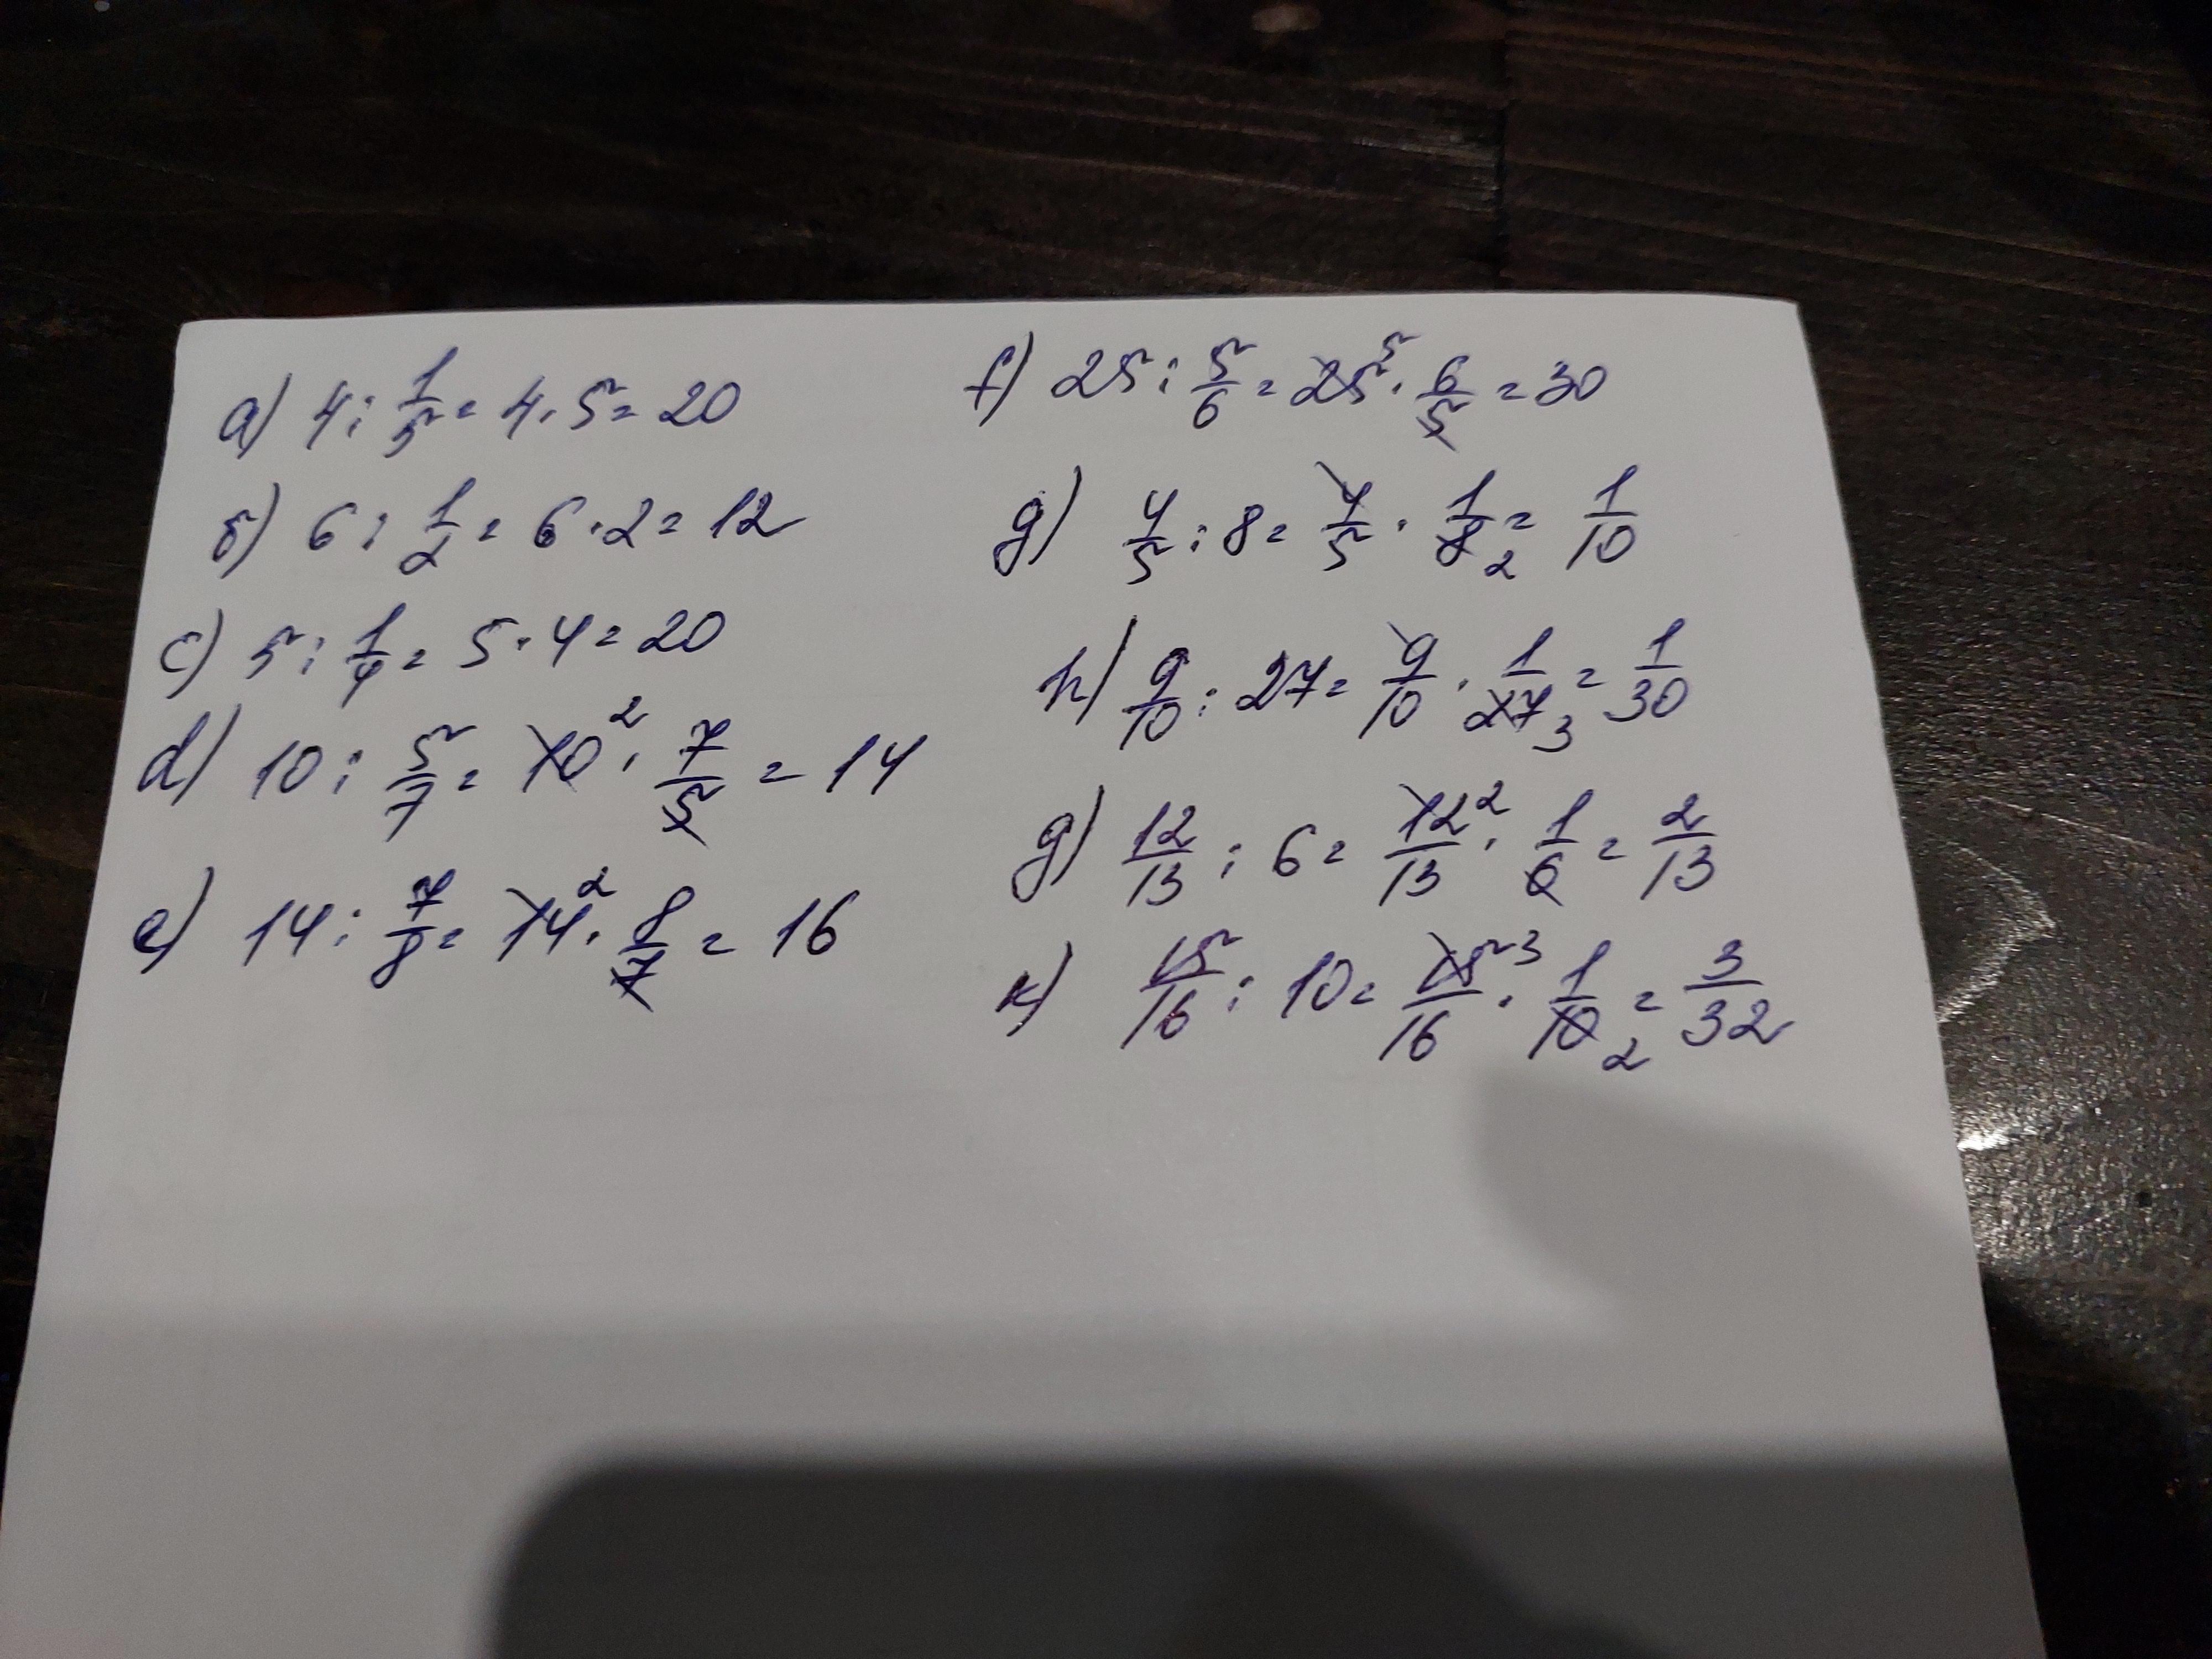 а) 4 : 1/5 = 4 · 5 = 20
б) 6 : 1/2 = 6 · 2 = 12
c) 5 : 1/4 = 5 · 4 = 20
d) 10 : 5/7 = 10² · 7/5 = 14
e) 14 : 7/8 = 14² · 8/7 = 16
f) 25 : 5/6 = 25⁵ · 6/5 = 30
g) 4/5 : 8 = 4/5 · 1/8₂ = 1/10
h) 9/10 : 27 = 9/10 · 1/27₃ = 1/30
g) 12/13 : 6 = 12²/13 · 1/6 = 2/13
к) 15/16 : 10 = 15³/16 · 1/10₂ = 3/32